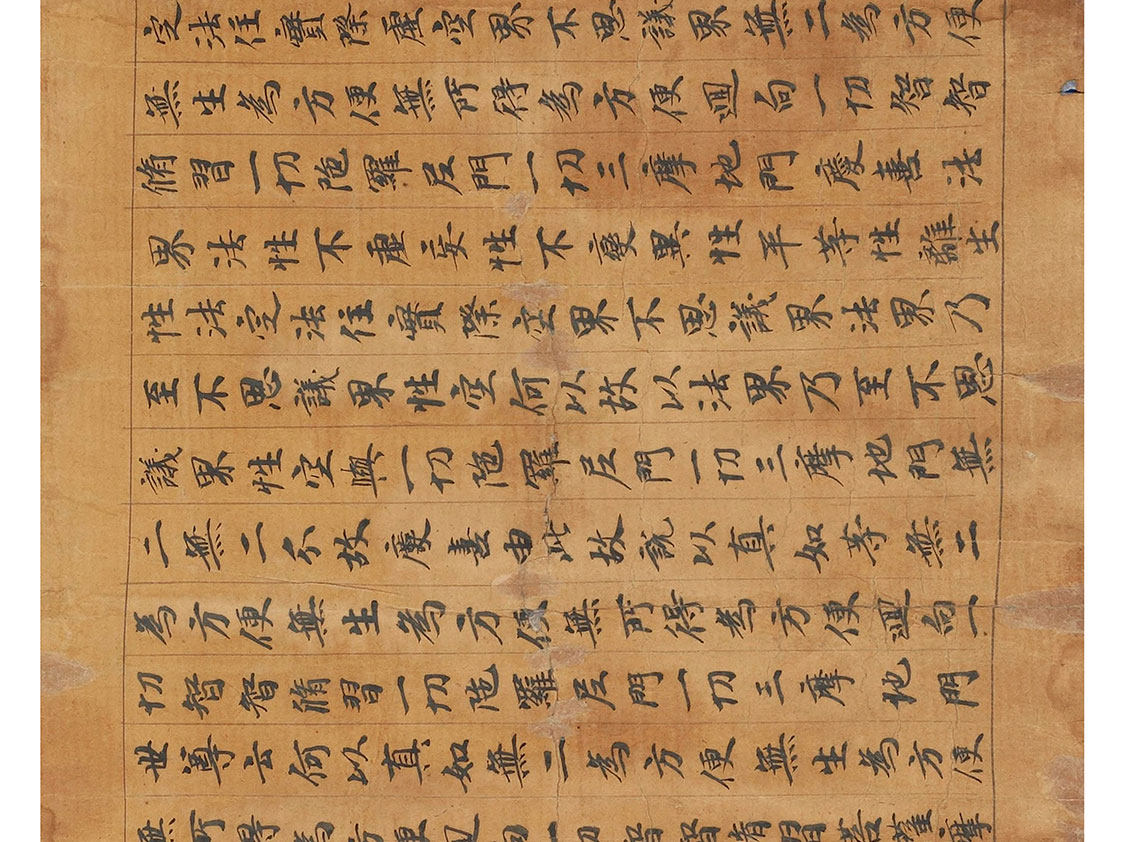 定法住實際虛空界不思議界無二為方便
無生為方便無所得為方便迴向一切智智
脩習一切陁羅尼門一切三摩地門慶喜法
界法性不虛妄性不變異性平等性離生
性法定法住實際空界不思議界法界乃
至不思議界性空何以故以法界乃至不思
議界性空與一切陁羅尼門一切三摩地門無
二無二分故慶喜由此故說以真如等無二
為方便無生為方便無所得為方便迴向一
切智智脩習一切陁羅尼門一切三摩地門
世尊云何以真如無二為方便無生為方便
無所得為方便迴向一切智智脩習菩薩摩